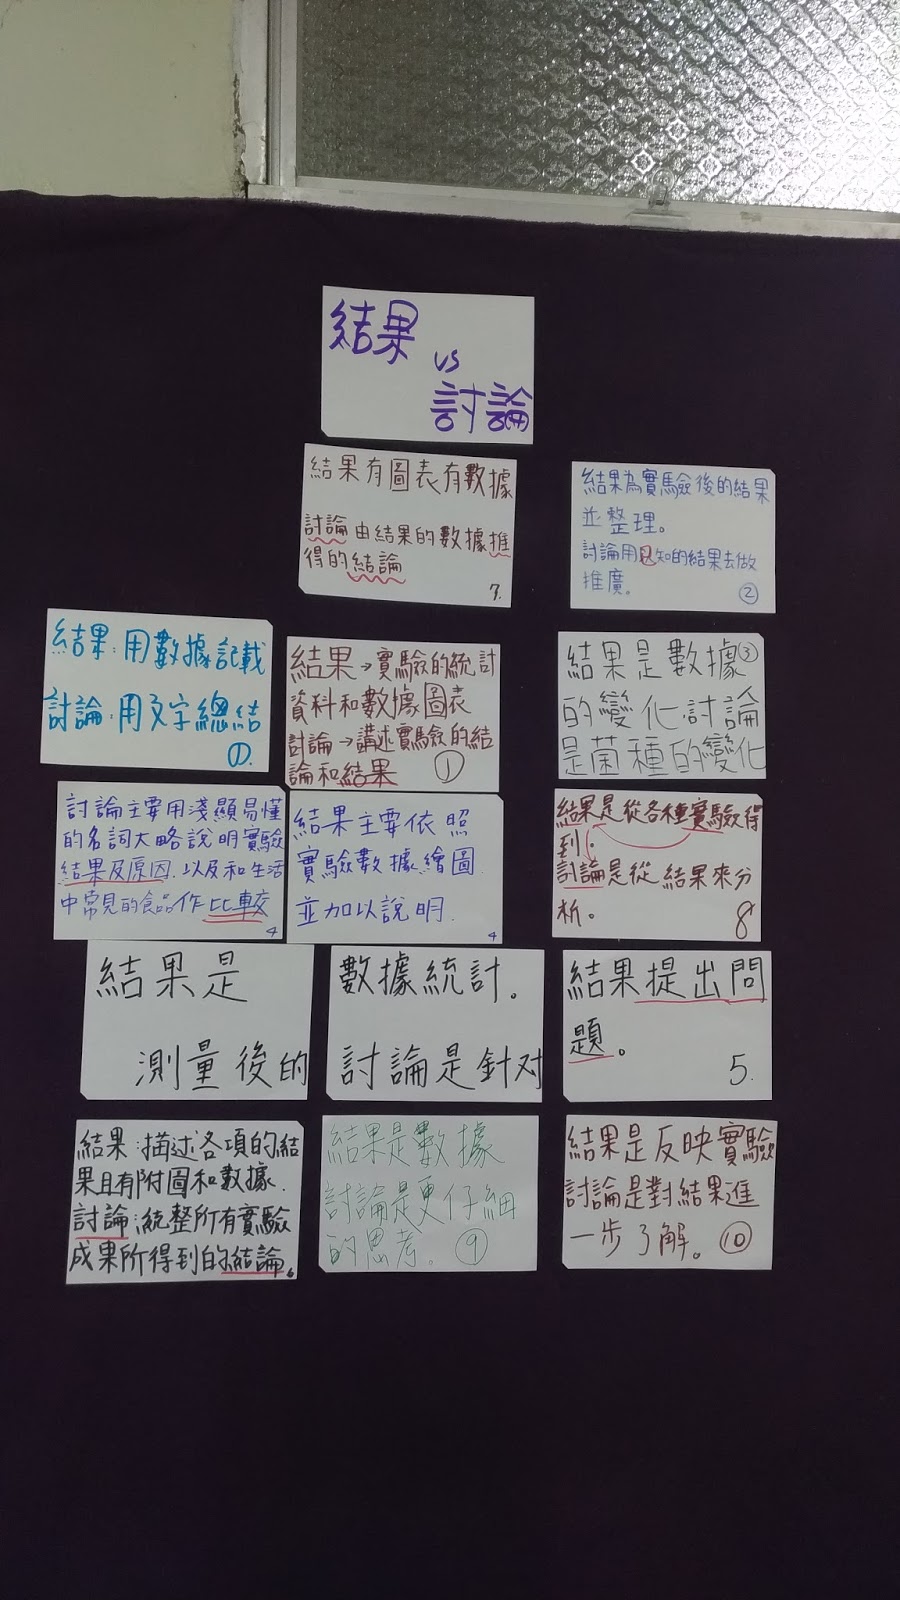 結果
vs
討論
結果有圖表有數據
討論由結果的數據推
得的結論
7.
結果為實驗後的結果
並整理。
討論用已知的結果去做
推廣。
②
結果：用數據記載
討論：用文字總結
①.
結果→實驗的統計
資料和數據圖表
討論→講述實驗的結
論和結果
①
結果是數據③
的變化討論
是菌種的變化
討論主要用淺顯易懂
的名詞大略說明實驗
結果及原因.以及和生活
中常見的食品作比較
4
結果主要依照
實驗數據繪圖
並加以說明.
4
結果是從各種實驗得
到。
討論是從結果來分
析。
8
結果是
測量後的
數據統計。
討論是針对
結果提出問
題。
5.
結果:描述各項的結
果且有附圖和數據.
討論:統整所有實驗
成果所得到的結論。
6
結果是數據
討論是更仔細
的思考。⑨
結果是反映實驗
討論是對結果進
一步了解。⑩